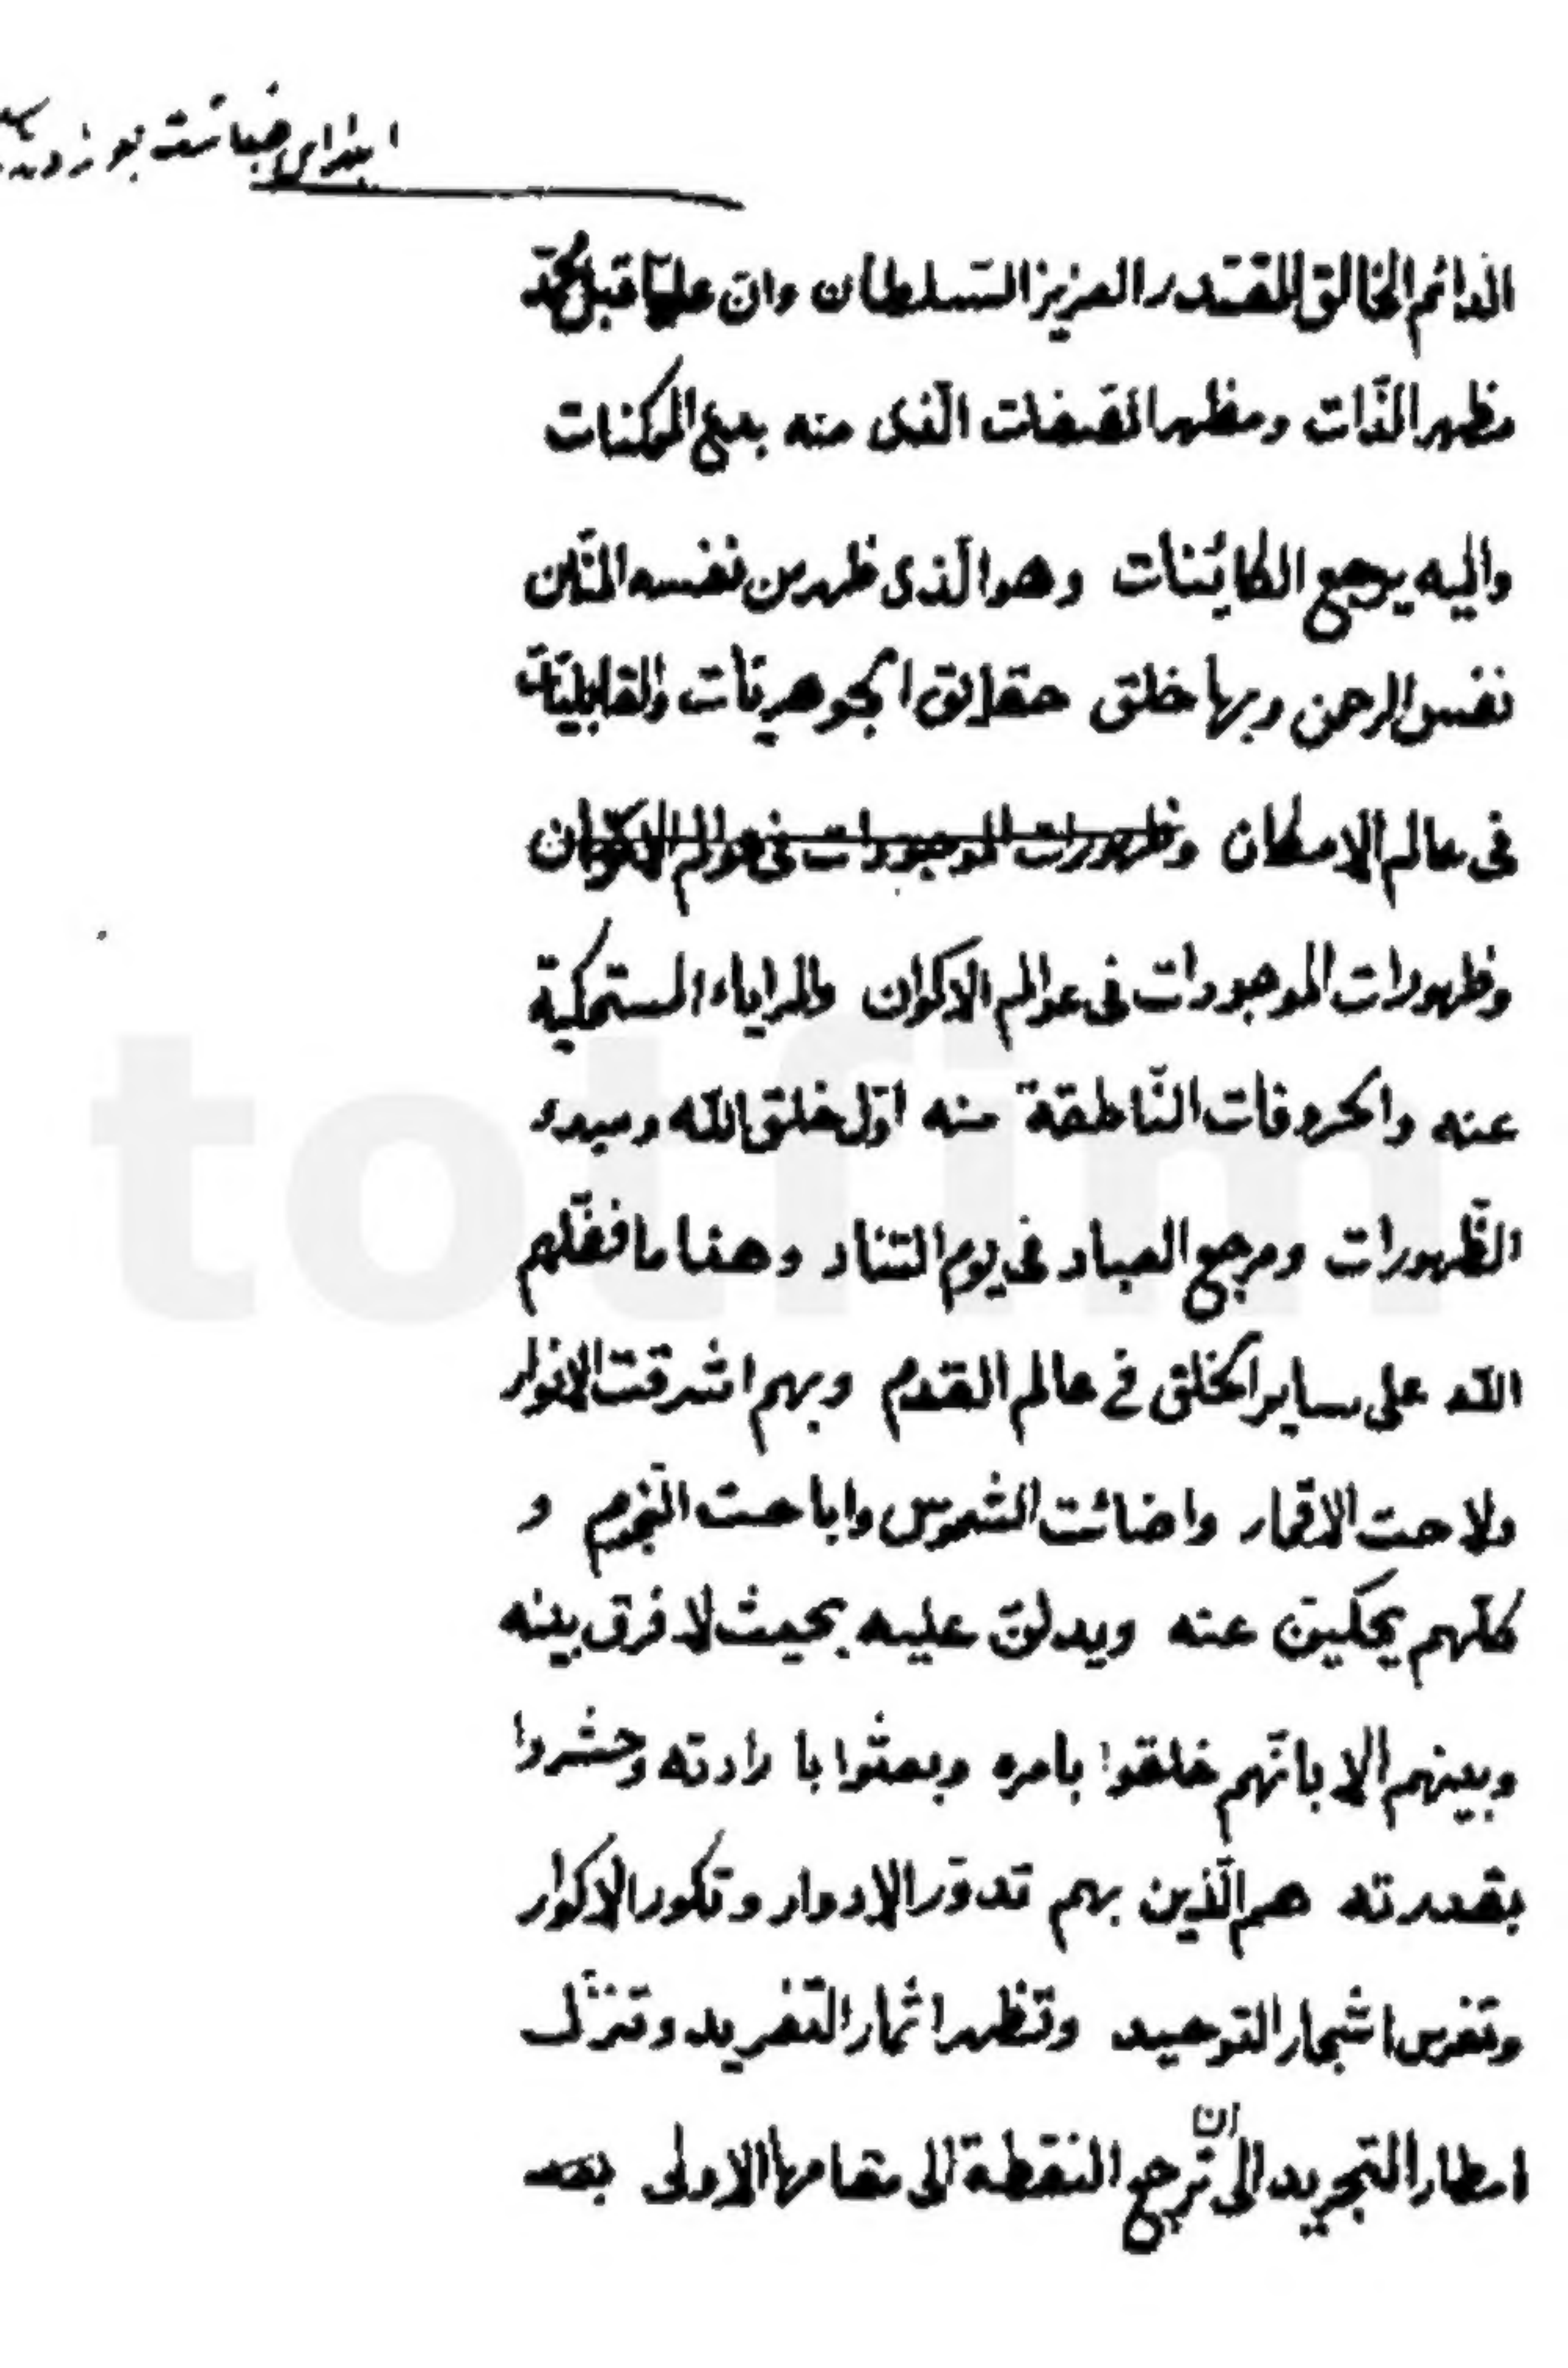 الدائم الخالق المقتدر العزيز السّلطان وانّ عليّا قبل محمّد
مظهر الذّات ومظهر الصّفات الّذى منه بدع الممكنات
واليه يرجع الكائينات وهو الّذى ظهر من نفسه المنّان
نفس الرحمن وبها خلق حقايق الجوهريّات والقابليّات
فى عالم الامكان وظهورات الموجودات فى عوالم الاكوان
وظهورات الموجودات فى عوالم الاكوان والمراياء المستحكية
عنه والحروفات النّاطقة منه اوّل خلق الله ومبدء
الظّهورات ومرجع العباد فى يوم التّناد وهذا ما فضّلهم
الله على ساير الخلق فى عالم القدم وبهم اشرقت الانوار
ولاحت الاقمار واضائت الشّموس واباحت النّجوم و
كلّهم يحكينّ عنه ويدلنّ عليه بحيث لا فرق بينه
وبينهم الا بانّهم خلقوا بامره وبعثوا با رادته وحشروا
بقدرته هم الّذين بهم تدوّر الادوار وتكور الاكوار
وتغرس اشجار التوحيد وتظهر اثمار التّفريد وتنزّل
امطار التّجريد الى ان ترجع النقطة الى مقامها الاولى بعد
totfim